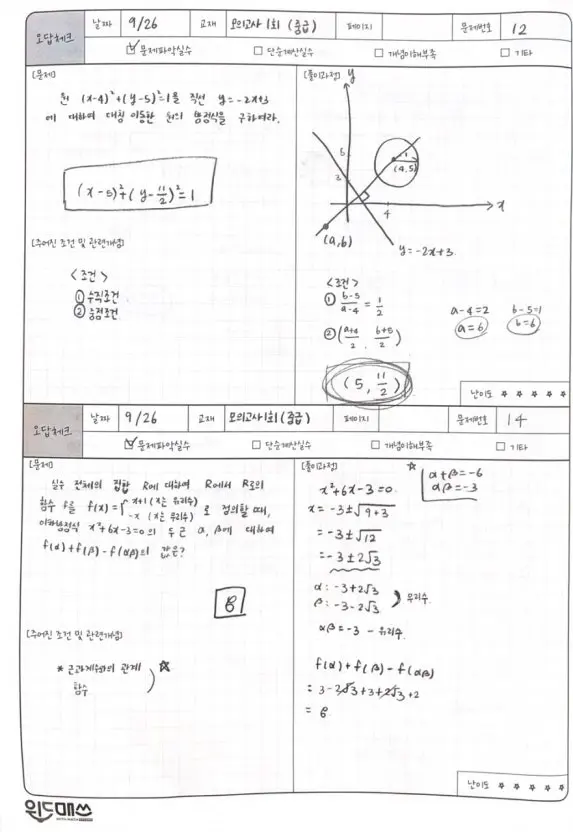 오답체크
날짜 9/26 교재 모의고사 1회 (중급) 페이지 문제번호 12
☑ 문제파악실수 □ 단순계산실수 □ 개념이해부족 □ 기타
[문제]
원 (x-4)²+(y-5)²=1을 직선 y=-2x+3
에 대하여 대칭 이동한 원의 방정식을 구하여라.
(x-5)²+(y-11/2)²=1
[주어진 조건 및 관련개념]
<조건>
① 수직조건
② 중점조건
[풀이과정]
y
6
3
1
(4,5)
4
x
(a,b)
y=-2x+3
<조건>
① b-5/a-4 = 1/2
② (a+4/2, b+5/2)
a-4=2 b-5=1
a=6 b=6
(5, 11/2)
난이도 ★ ★ ★ ★ ★
오답체크
날짜 9/26 교재 모의고사 1회 (중급) 페이지 문제번호 14
☑ 문제파악실수 □ 단순계산실수 □ 개념이해부족 □ 기타
[문제]
실수 전체의 집합 R에 대하여 R에서 R로의
함수 f를 f(x)={x+1 (x는 유리수) -x (x는 무리수) 로 정의할 때,
이차방정식 x²+6x-3=0의 두 근 α, β에 대하여
f(α)+f(β)-f(αβ)의 값은?
8
[주어진 조건 및 관련개념]
* 근과계수와의 관계
함수
☆
[풀이과정]
☆ α+β=-6
αβ=-3
x²+6x-3=0
x= -3±√9+3
= -3±√12
= -3±2√3
α: -3+2√3
β: -3-2√3
무리수
αβ=-3 - 유리수
f(α)+f(β)-f(αβ)
= 3-2√3+3+2√3+2
= 8
난이도 ★ ★ ★ ★ ★
위드매쓰